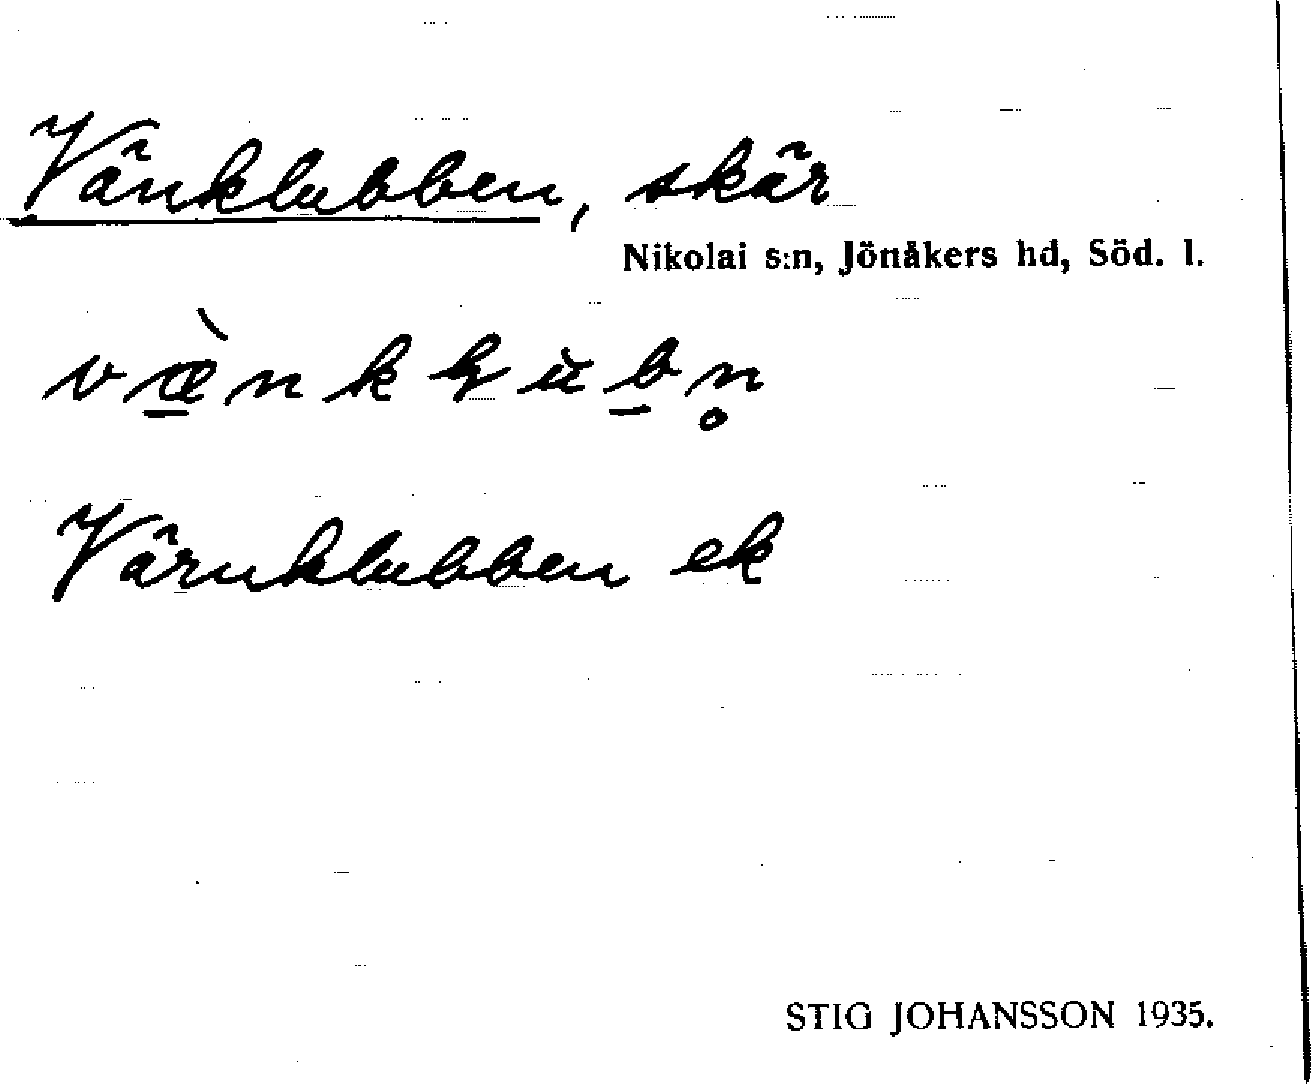 Vänklubben, skär
Nikolai s:n, Jönåkers hd, Söd. l.
Värnklubben ek
STIG JOHANSSON 1935.